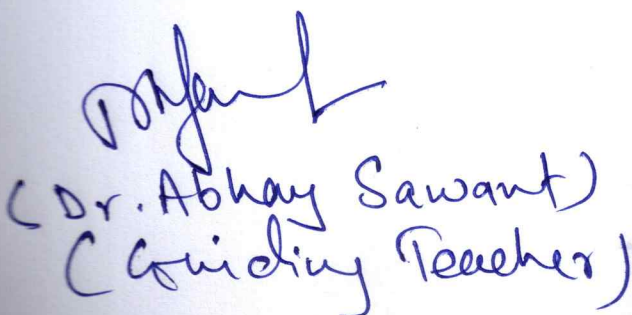 (Dr. Abhay Sawant)
(Guiding Teacher)